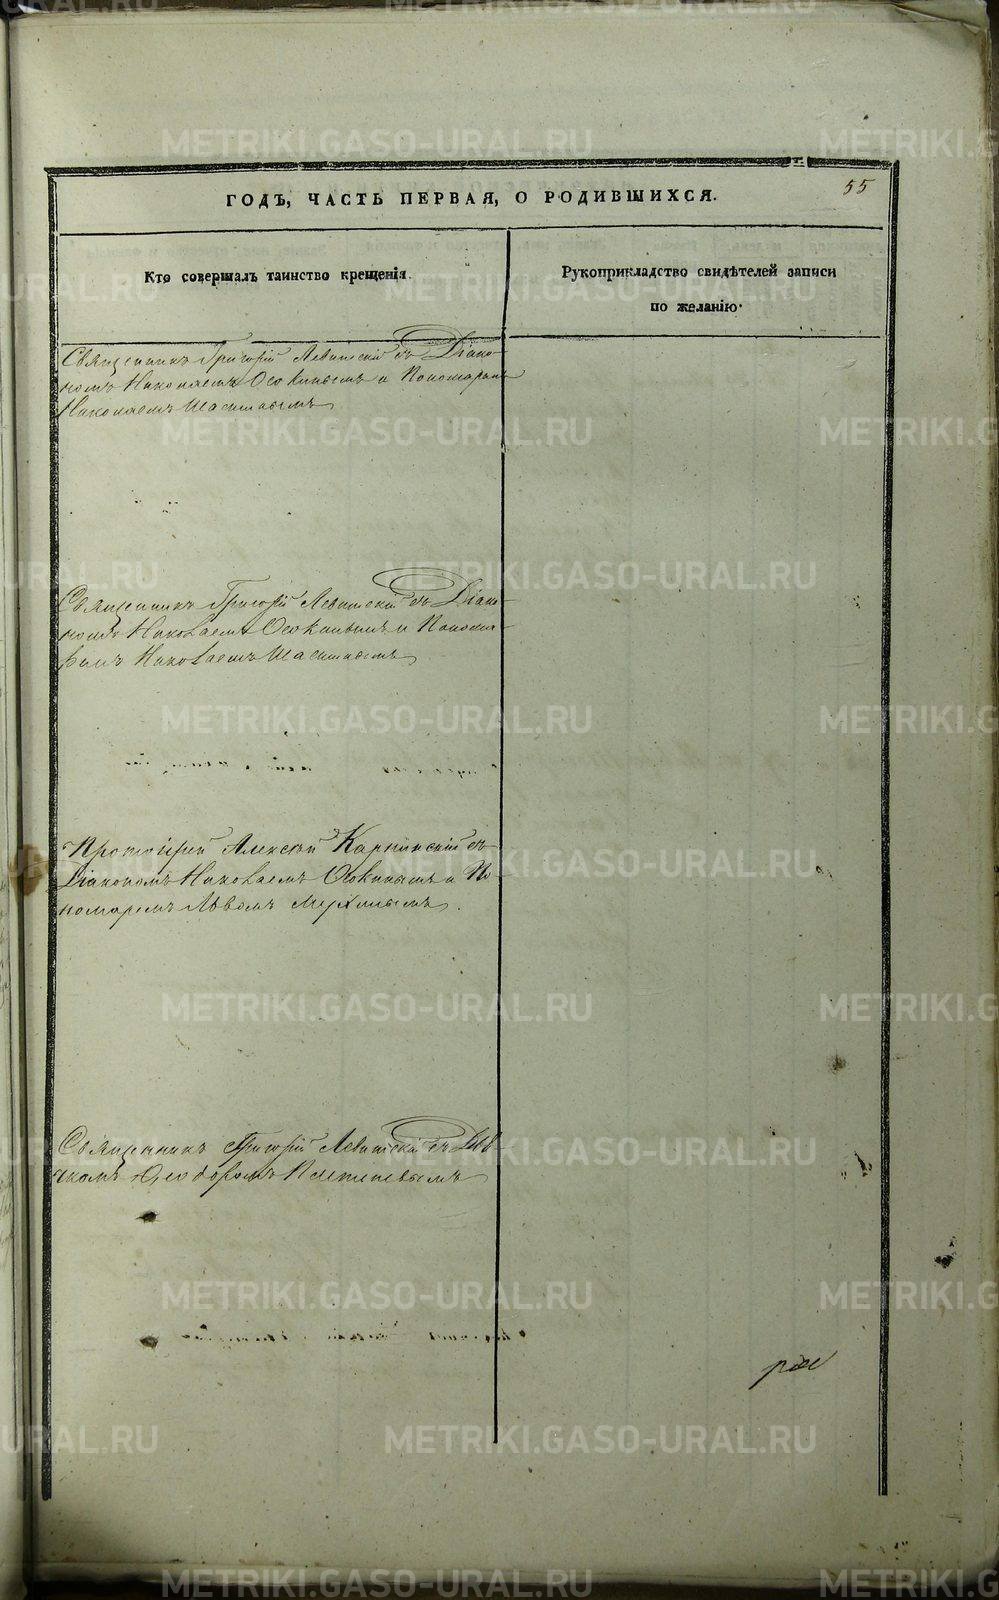 55
ГОДЪ, ЧАСТЬ ПЕРВАЯ, О РОДИВШИХСЯ.
Кто совершалъ таинство крещенія.
Рукоприкладство свидѣтелей записи
по желанію.
Священникъ Григорій Левитскій съ Діако-
номъ Николаемъ Осокинымъ и Пономаремъ
Николаемъ
Священникъ Григорій Левитскій съ Діако-
номъ Николаемъ Осокинымъ и Понома-
ремъ Николаемъ
Протоіерей Алексѣй Карпинскій съ
Діакономъ Николаемъ Осокинымъ и По
номаремъ Львомъ
Священникъ Григорій Левитскій съ Дья
комъ Ѳеодоромъ
METRIKI.GASO-URAL.RU